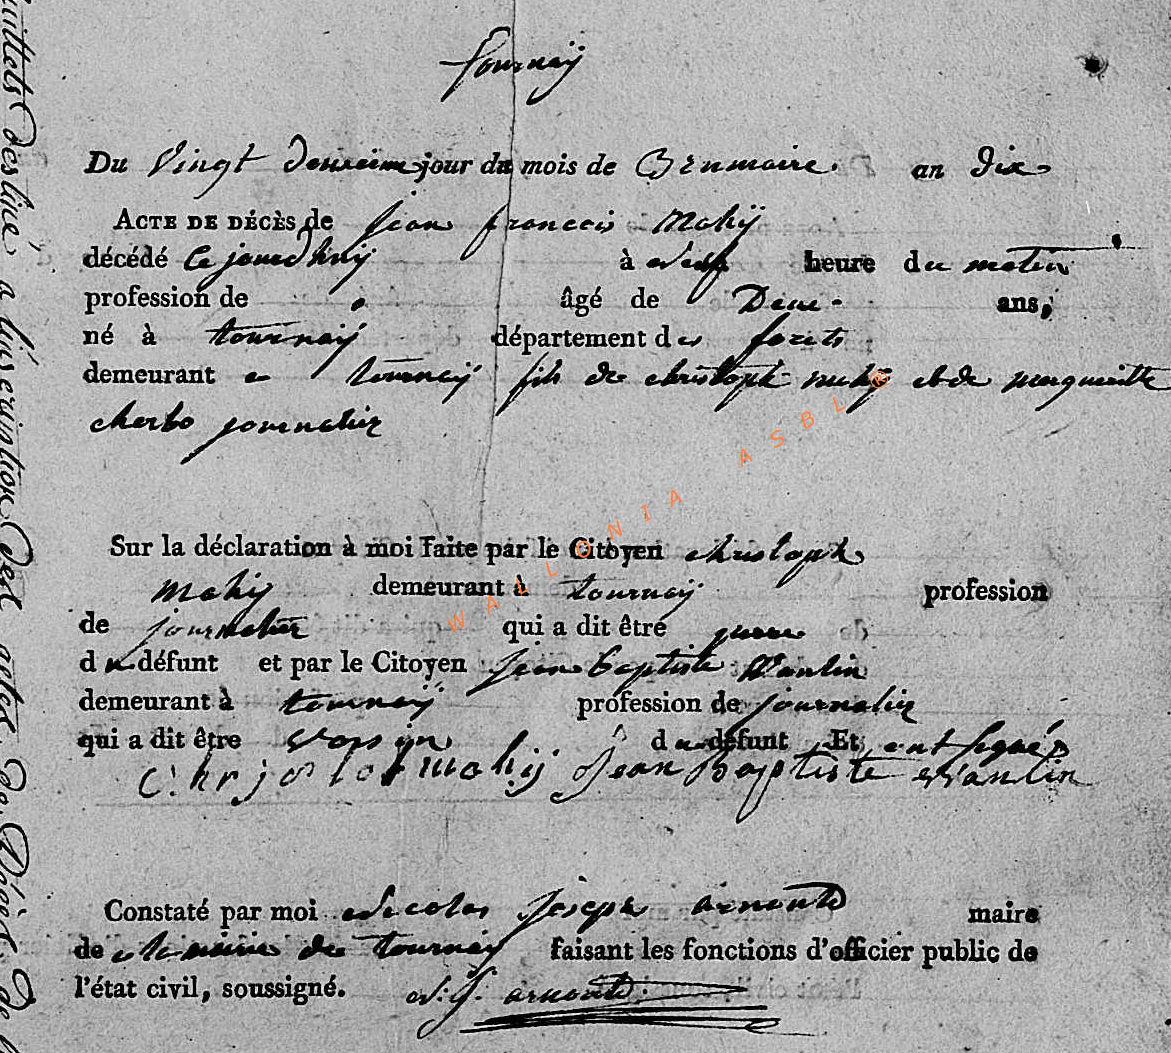 tournaÿ
Du Vingt deuxieme jour du mois de Brumaire. an dix
ACTE DE DÉCÈS de jean francois Mahÿ
décédé Ce jourdhuÿ à neuf heure du matin
profession de âgé de Deux ans,
né à tournaÿ département des forets
demeurant a tournaÿ fils de christoph mahÿ et de margueritte
cherbo journalier
Sur la déclaration à moi faite par le Citoyen christoph
Mahÿ demeurant à tournaÿ profession
de journalier qui a dit être perre
du défunt et par le Citoyen Jean baptiste Wautin
demeurant à tournaÿ profession de journalier
qui a dit être voisin du défunt Et ont signés
Chrjstof mahÿ Jean Baptiste Wautin
Constaté par moi Nicolas Joseph arnould maire
de la mairie de tournaÿ faisant les fonctions d'officier public de
l'état civil, soussigné. N. J. arnould.
WALLONIA ASBL
feuillets destiné a l'inscription des actes de Décès de la